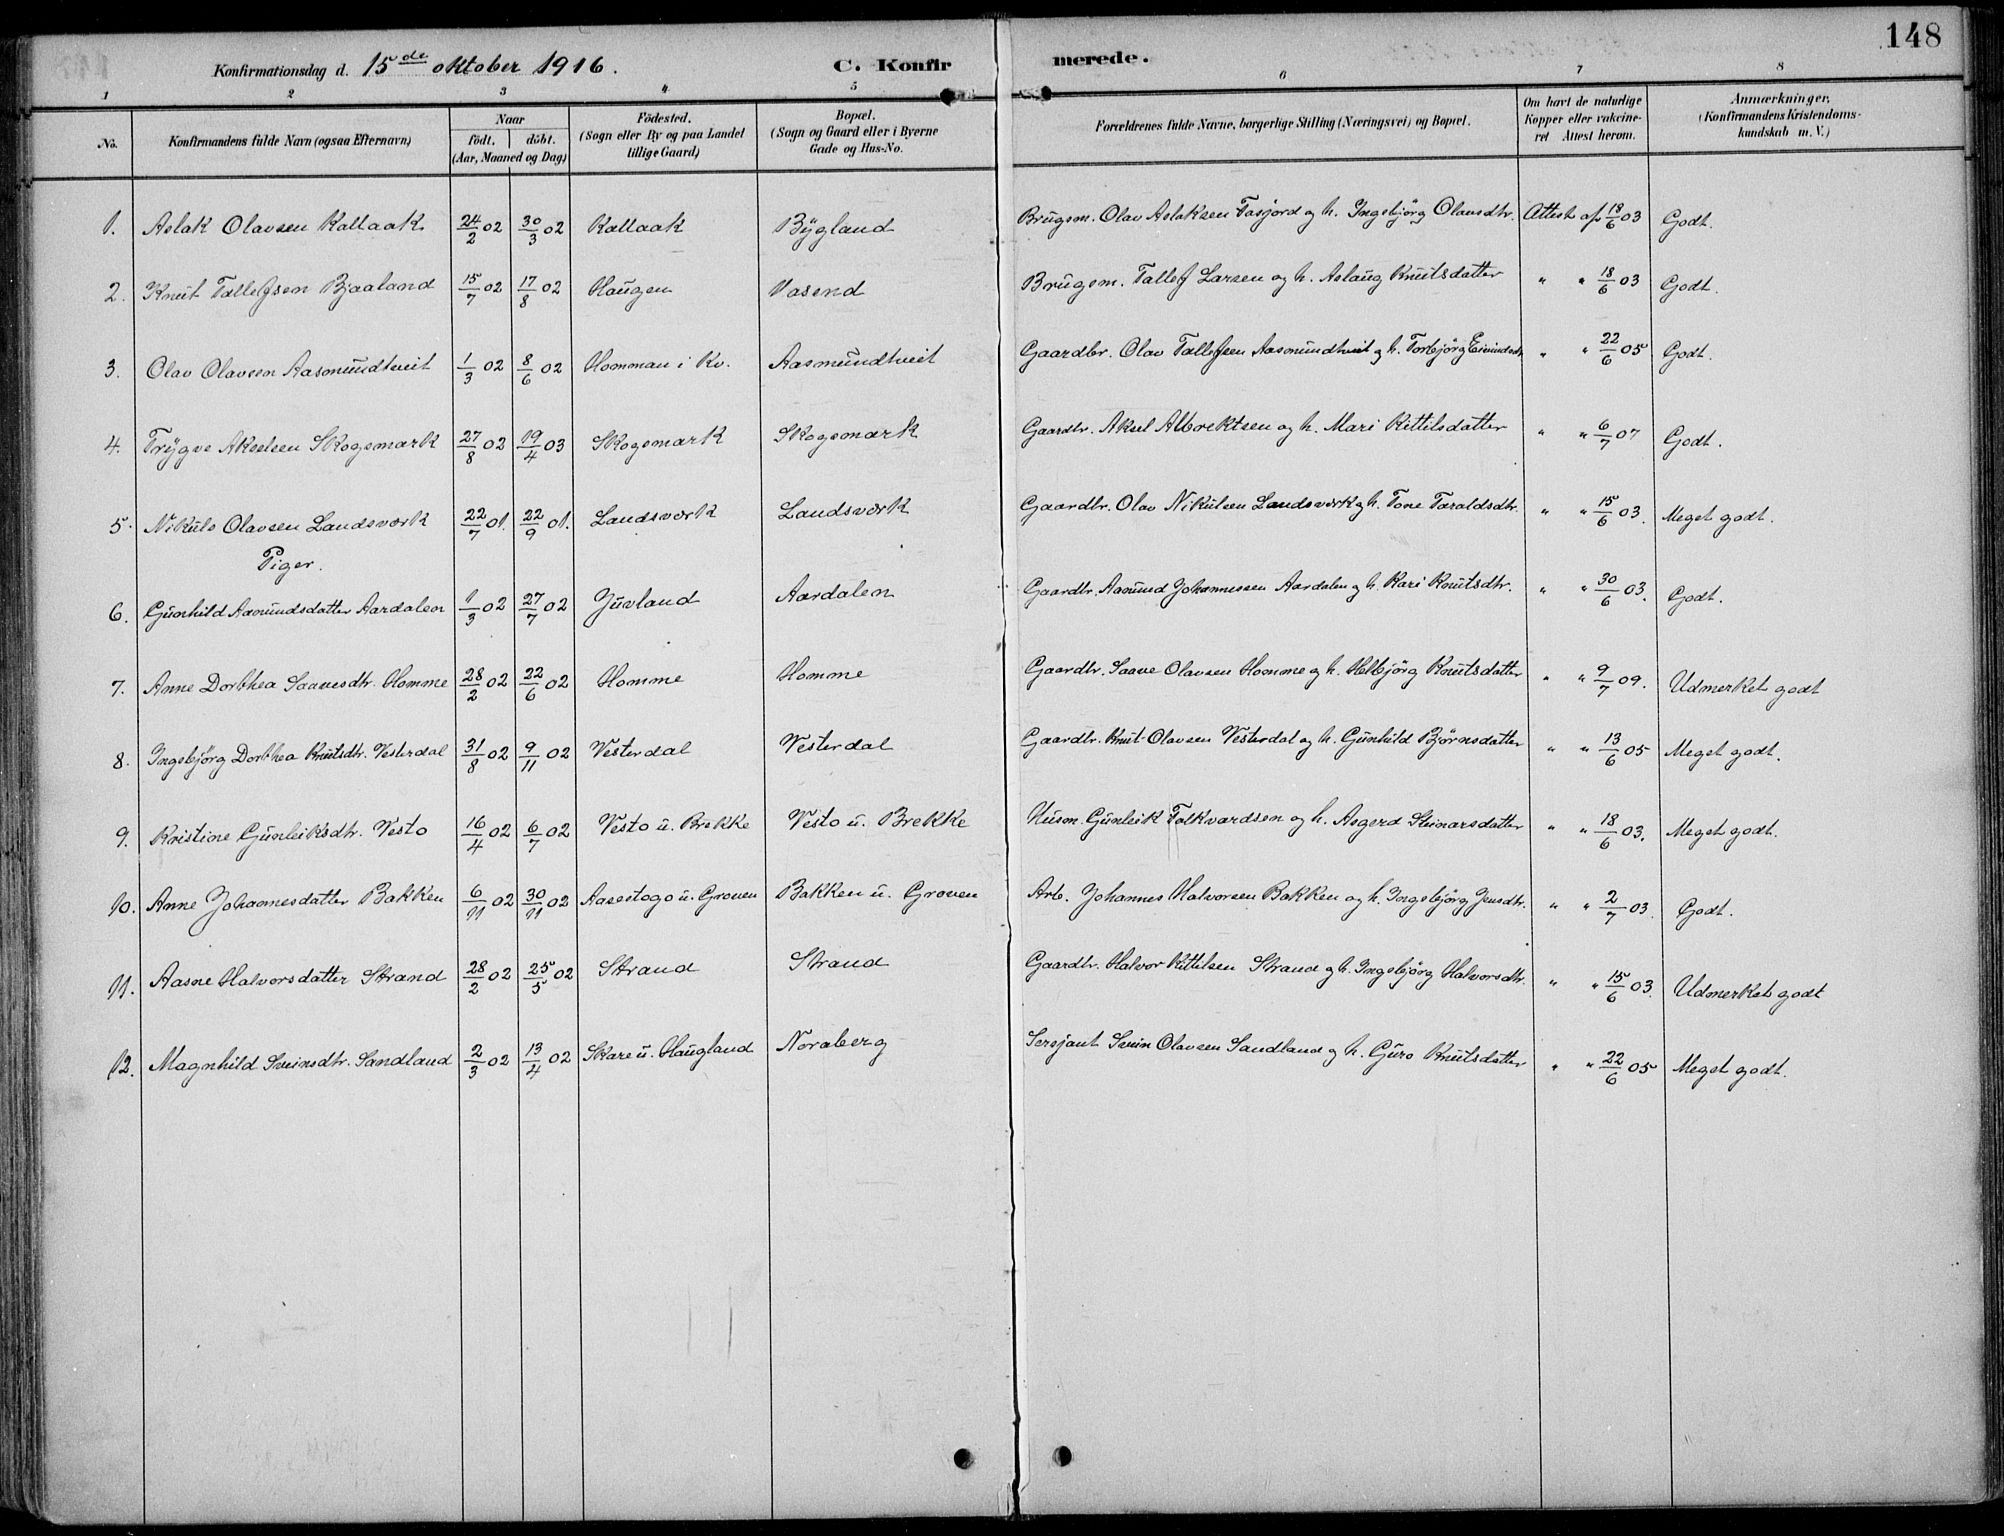 148
Konfirmationsdag d. 15de oktober 1916.
C. Konfirmerede.
1 2 3 4 5 6 7 8
No. | Konfirmandens fulde Navn (ogsaa Efternavn) | Naar født. døbt. (Aar, Maaned og Dag) | Fødested. (Sogn eller By og paa Landet tillige Gaard) | Bopæl. (Sogn og Gaard eller i Byerne Gade og Hus-No. | Forældrenes fulde Navne, borgerlige Stilling (Næringsvei) og Bopæl. | Om havt de naturlige Kopper eller vakcineret Attest herom. | Anmærkninger, (Konfirmandens Kristendomskundskab m. V.)
1. Aslak Olavsen Kallaak 24/2 02 30/3 02 Kallaak Bygland Brugsm. Olav Aslaksen Tasjord og h. Ingebjörg Olavsdtr. Attest af 18/6 03 Godt.
2. Knut Tallefsen Bjaaland 15/7 02 17/8 02 Haugen Vasend Brugsm. Tallef Larsen og h. Aslaug Knutsdatter " " 18/6 03 Godt.
3. Olav Olavsen Aasmundtveit 1/3 02 8/6 02 Homman i Kv. Aasmundtveit Gaardbr. Olav Tallefsen Aasmundtveit og h. Torbjörg Eivindsdtr " " 22/6 05 Godt.
4. Trygve Akselsen Skogsmark 27/8 02 19/4 03 Skogsmark Skogsmark Gaardbr. Aksel Albrektsen og h. Mari Kittilsdatter " " 6/7 07 Godt.
5. Nikuls Olavsen Landsværk 22/7 01. 22/9 01. Landsværk Landsværk Gaardbr. Olav Nikulsen Landsværk og h. Tone Taraldsdtr. " " 15/6 03. Meget godt.
Piger.
6. Gunhild Aamundsdatter Aardalen 1/3 02 27/7 02 Juvland Aardalen Gaardbr. Aamund Johannessen Aardalen og h. Kari Knutsdtr. " " 30/6 03. Godt.
7. Anne Dorthea Saavesdtr. Homme 28/2 02 22/6 02 Homme Homme Gaardbr. Saave Olavsen Homme og h. Helbjörg Knutsdatter " " 9/7 09. Udmerket godt
8. Ingebjörg Dorthea Knutsdtr. Vesterdal 31/8 02 9/11 02 Vesterdal Vesterdal Gaardbr. Knut Olavsen Vesterdal og h. Gunhild Björnsdatter " " 13/6 05 Meget godt.
9. Kristine Gunleiksdtr. Vesto 16/4 02 6/7 02 Vesto u. Brekke Vesto u. Brekke Husm. Gunleik Folkvardsen og h. Asgerd Steinarsdatter " " 18/6 03. Meget godt.
10. Anne Johannesdatter Bakken 6/11 02 30/11 02 Aasestogo u. Groven Bakken u. Groven Arb. Johannes Halvorsen Bakken og h. Ingebjörg Jensdtr. " " 2/7 03. Godt.
11. Aasne Halvorsdatter Strand 28/2 02 25/5 02 Strand Strand Gaardbr. Halvor Kittilsen Strand og h. Ingebjörg Halvorsdtr. " " 15/6 03. Udmerket godt
12. Magnhild Sveinsdtr. Sandland 2/3 02 13/4 02 Skare u. Haugland Noraberg Sersjant Svein Olavsen Sandland og h. Guro Knutsdatter " " 22/6 05 Meget godt.